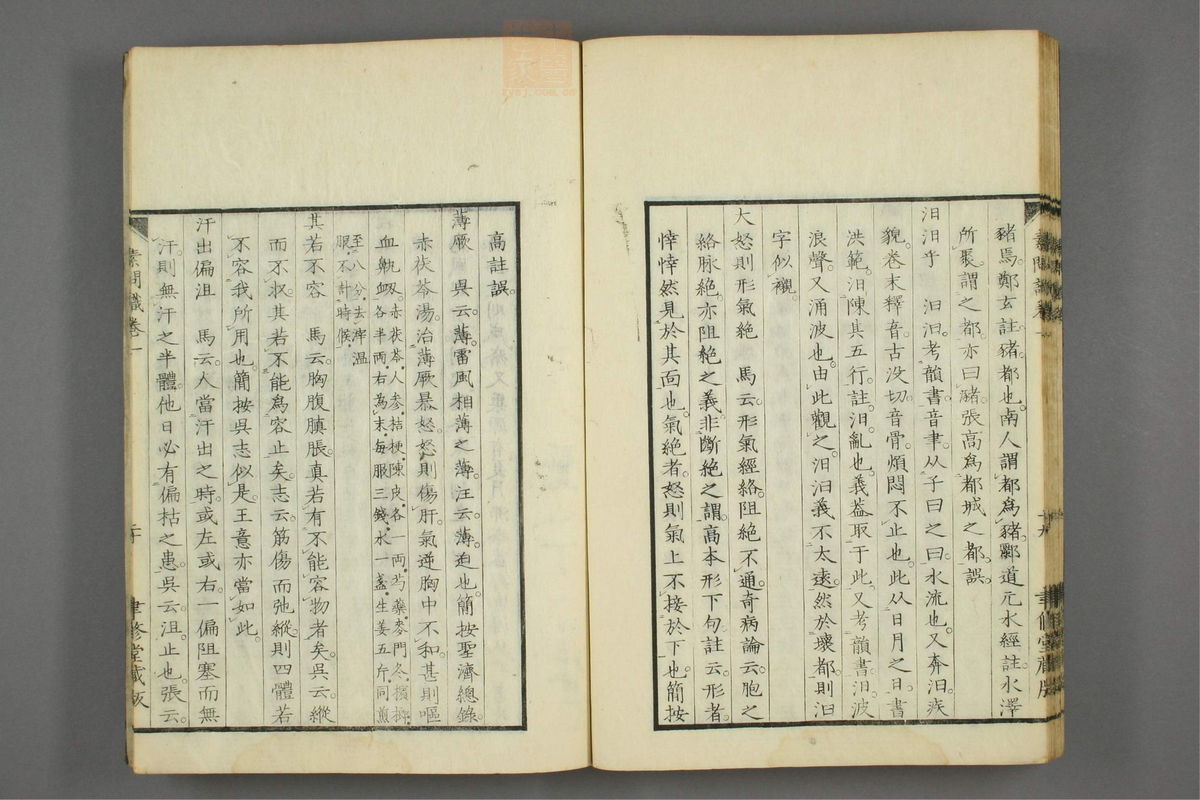 豬焉。鄭玄註。豬。都也。南人謂都爲豬。酈道元水經註。水澤
所聚。謂之都。亦曰豬。張高爲都城之都。誤。
汨汨乎　汨汨。考韻書。音聿。从子曰之曰。水流也。又奔汨。疾
貌。卷末釋音。古沒切。音骨。煩悶不止也。此从日月之日。書
洪範。汨陳其五行。註。汨。亂也。義蓋取于此。又考韻書。汨。波
浪聲。又涌波也。由此觀之。汨汨義不太遠。然於壞都。則汨
字似襯。
大怒則形氣絕　馬云。形氣經絡阻絕不通。奇病論云。胞之
絡脉絕。亦阻絕之義。非斷絕之謂。高本形下句。註云。形者。
悻悻然見於其面也。氣絕者。怒則氣上。不接於下也。簡按
高註誤。
薄厥　吳云。薄。雷風相薄之薄。汪云。薄。迫也。簡按聖濟總錄。
赤茯苓湯。治薄厥暴怒。怒則傷肝。氣逆胸中不和。甚則嘔
血鼽衂。赤茯苓。人參。桔梗。陳皮。各一兩。芍藥。麥門冬。檳榔。
各半兩。右爲末。每服三錢。水一盞。生姜五片。同煎
至八分。去滓。溫
服。不計時候。
其若不容　馬云。胸腹䐜脹。真若有不能容物者矣。吳云。縱
而不收。其若不能爲容止矣。志云。筋傷而弛縱。則四體若
不容我所用也。簡按吳志似是。王意亦當如此。
汗出偏沮　馬云。人當汗出之時。或左或右。一偏阻塞而無
汗。則無汗之半體。他日必有偏枯之患。吳云。沮。止也。張云。
素問識卷一
二十
聿修堂藏版